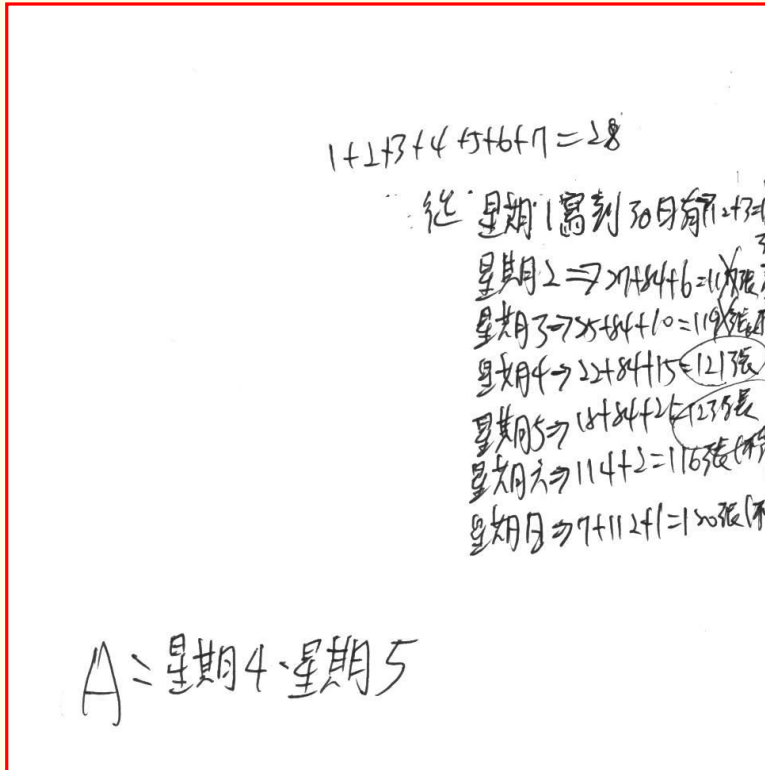 1+2+3+4+5+6+7=28
從星期1寫到30日有112+3=1
星期2⇒27+84+6=117張
星期3⇒25+84+10=119張
星期4⇒22+84+15=121張
星期5⇒18+84+21=123張
星期六⇒114+2=116張(不
星期日⇒7+112+1=120張(不
A=星期4、星期5